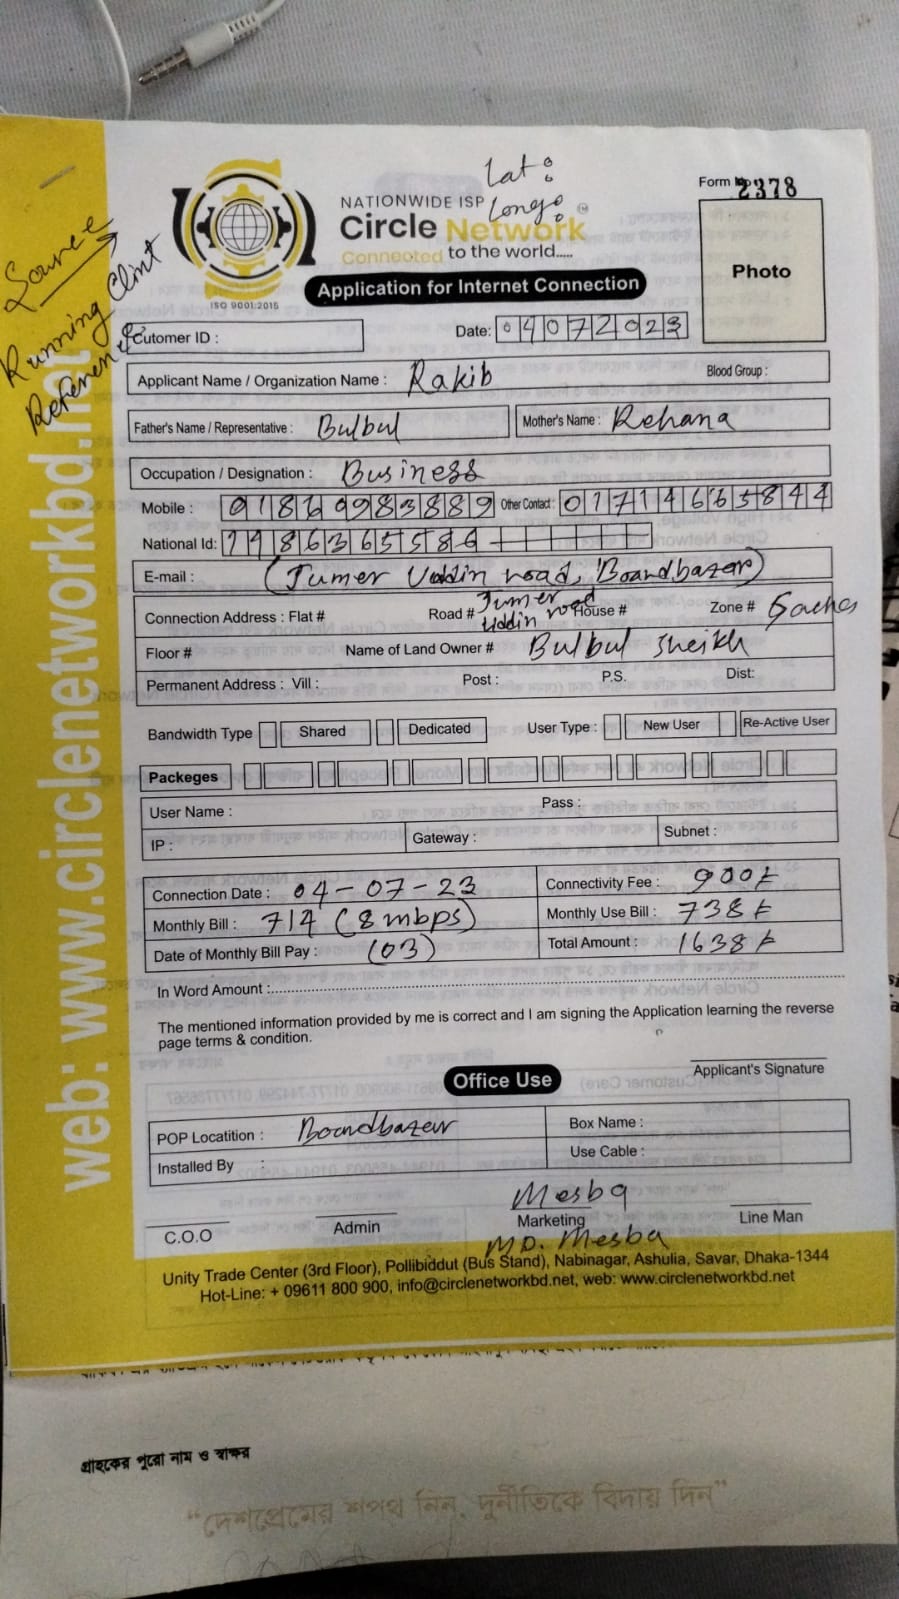 Lat:
Long:
Form No 2378
NATIONWIDE ISP
Circle Network
Connected to the world.....
ISO 9001:2015
Application for Internet Connection
Photo
Source
Running Clint
Reference
Cutomer ID :
Date: 04072023
Applicant Name / Organization Name : Rakib Blood Group :
Father's Name / Representative : Bulbul Mother's Name : Rehana
Occupation / Designation : Business
Mobile : Other Contact : 01714665844
National Id:
E-mail : (Jumer Uddin road, Boardbazar)
Connection Address : Flat # Road # Jumer Uddin road House # Zone #
Floor # Name of Land Owner # Bulbul Sheikh
Permanent Address : Vill : Post : P.S. Dist:
Bandwidth Type Shared Dedicated User Type : New User Re-Active User
Packeges
User Name : Pass :
IP : Gateway : Subnet :
Connection Date : 04-07-23 Connectivity Fee : 900/-
Monthly Bill : 714 (8 mbps) Monthly Use Bill : 738/-
Date of Monthly Bill Pay : (03) Total Amount : 1638/-
In Word Amount :
The mentioned information provided by me is correct and I am signing the Application learning the reverse
page terms & condition.
Applicant's Signature
Office Use
POP Locatition : Boardbazar Box Name :
Installed By : Use Cable :
Mesba
C.O.O Admin Marketing Line Man
MD. Mesba
Unity Trade Center (3rd Floor), Pollibiddut (Bus Stand), Nabinagar, Ashulia, Savar, Dhaka-1344
Hot-Line: + 09611 800 900, info@circlenetworkbd.net, web: www.circlenetworkbd.net
web: www.circlenetworkbd.net
গ্রাহকের পুরো নাম ও স্বাক্ষর
“দেশপ্রেমের শপথ নিন, দুর্নীতিকে বিদায় দিন”